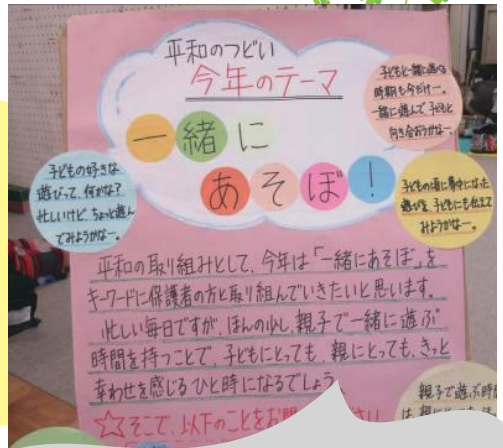 平和のつどい
今年のテーマ
一緒に
あそぼ!
子どもと一緒に遊べる
時期も今だけー。
一緒に遊んで、子どもと
向き合おうかなー。
子どもの好きな
遊びって、何かな?
忙しいけど、ちょっと遊ん
でみようかなー。
子どもの頃に夢中になった
遊びを、子どもにも伝えて
みようかなー。
平和の取り組みとして、今年は「一緒にあそぼ」を
キーワードに保護者の方と取り組んでいきたいと思います。
忙しい毎日ですが、ほんの少し、親子で一緒に遊ぶ
時間を持つことで、子どもにとっても、親にとっても、きっと
幸わせを感じるひと時になるでしょう。
☆そこで、以下のことをお
親子で遊ぶ時